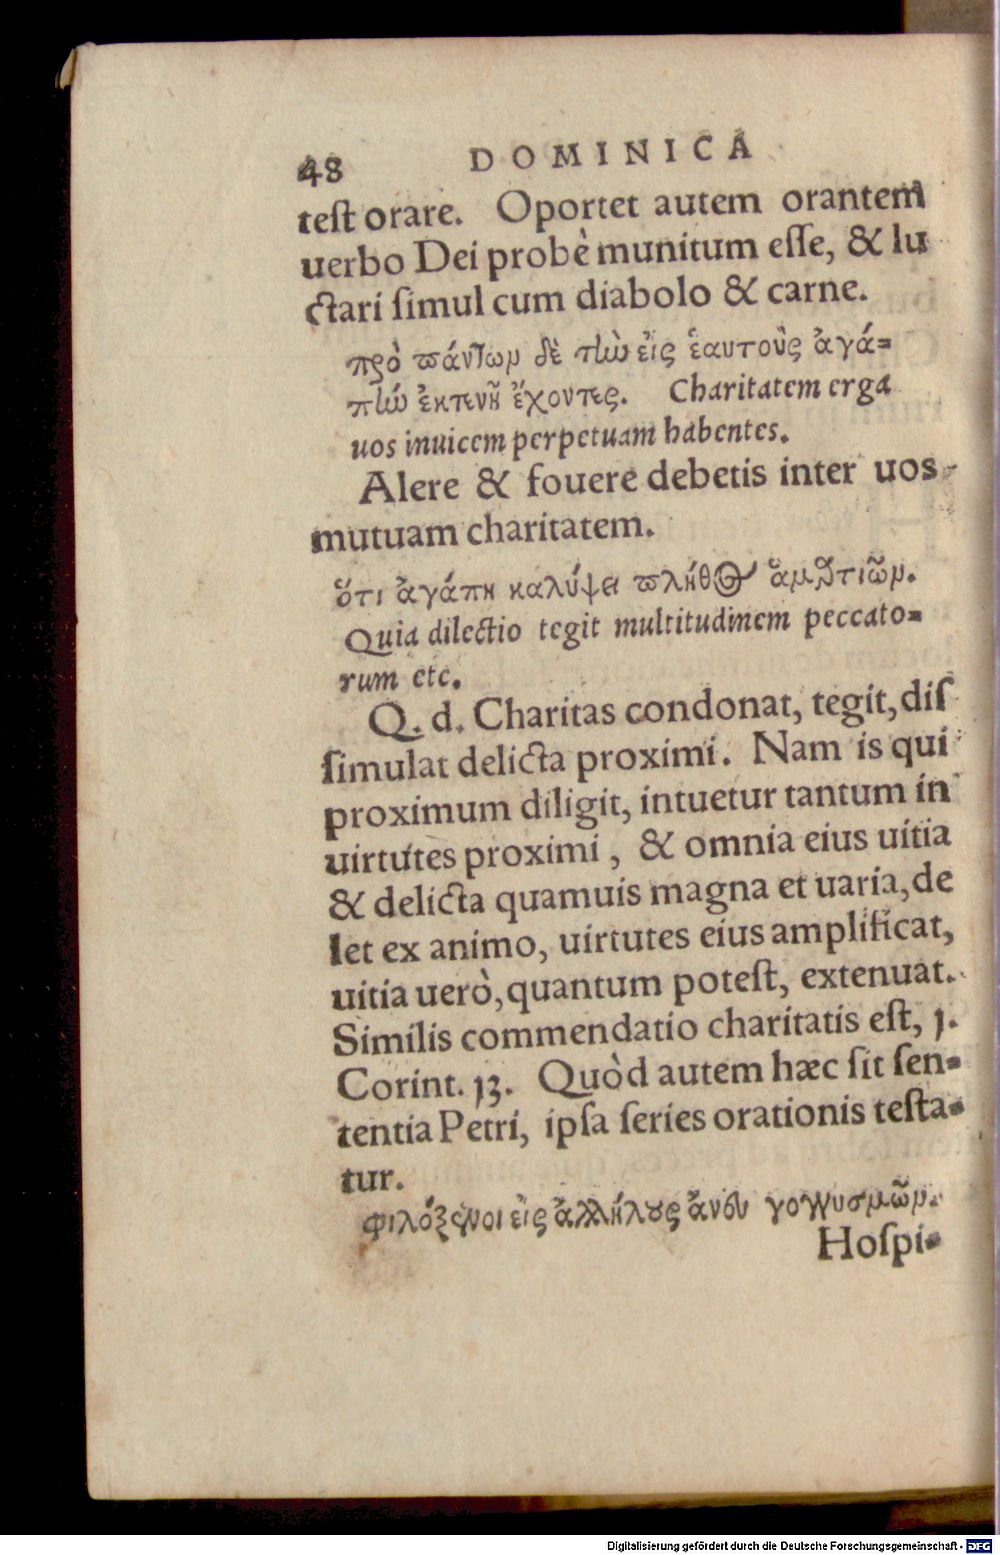 48 DOMINICA
teſt orare. Oportet autem orantem
uerbo Dei probè munitum eſſe, & lu
ctari ſimul cum diabolo & carne.
πρὸ πάντων δὲ τὴν εἰς ἑαυτοὺς ἀγά=
πὴν ἐκτενῆ ἔχοντες. Charitatem erga
uos inuicem perpetuam habentes.
Alere & fouere debetis inter uos
mutuam charitatem.
ὅτι ἀγάπη καλύψει πλῆθος ἁμαρτιῶν.
Quia dilectio tegit multitudinem peccato=
rum etc.
Q. d. Charitas condonat, tegit, diſ
ſimulat delicta proximi. Nam is qui
proximum diligit, intuetur tantum in
uirtutes proximi, & omnia eius uitia
& delicta quamuis magna et uaria, de
let ex animo, uirtutes eius amplificat,
uitia uerò, quantum poteſt, extenuat.
Similis commendatio charitatis eſt, 1.
Corint. 13. Quòd autem hæc ſit ſen=
tentia Petri, ipſa ſeries orationis teſta=
tur.
φιλόξενοι εἰς ἀλλήλους ἄνευ γογγυσμῶν.
Hoſpi=
Digitalisierung gefördert durch die Deutsche Forschungsgemeinschaft - DFG